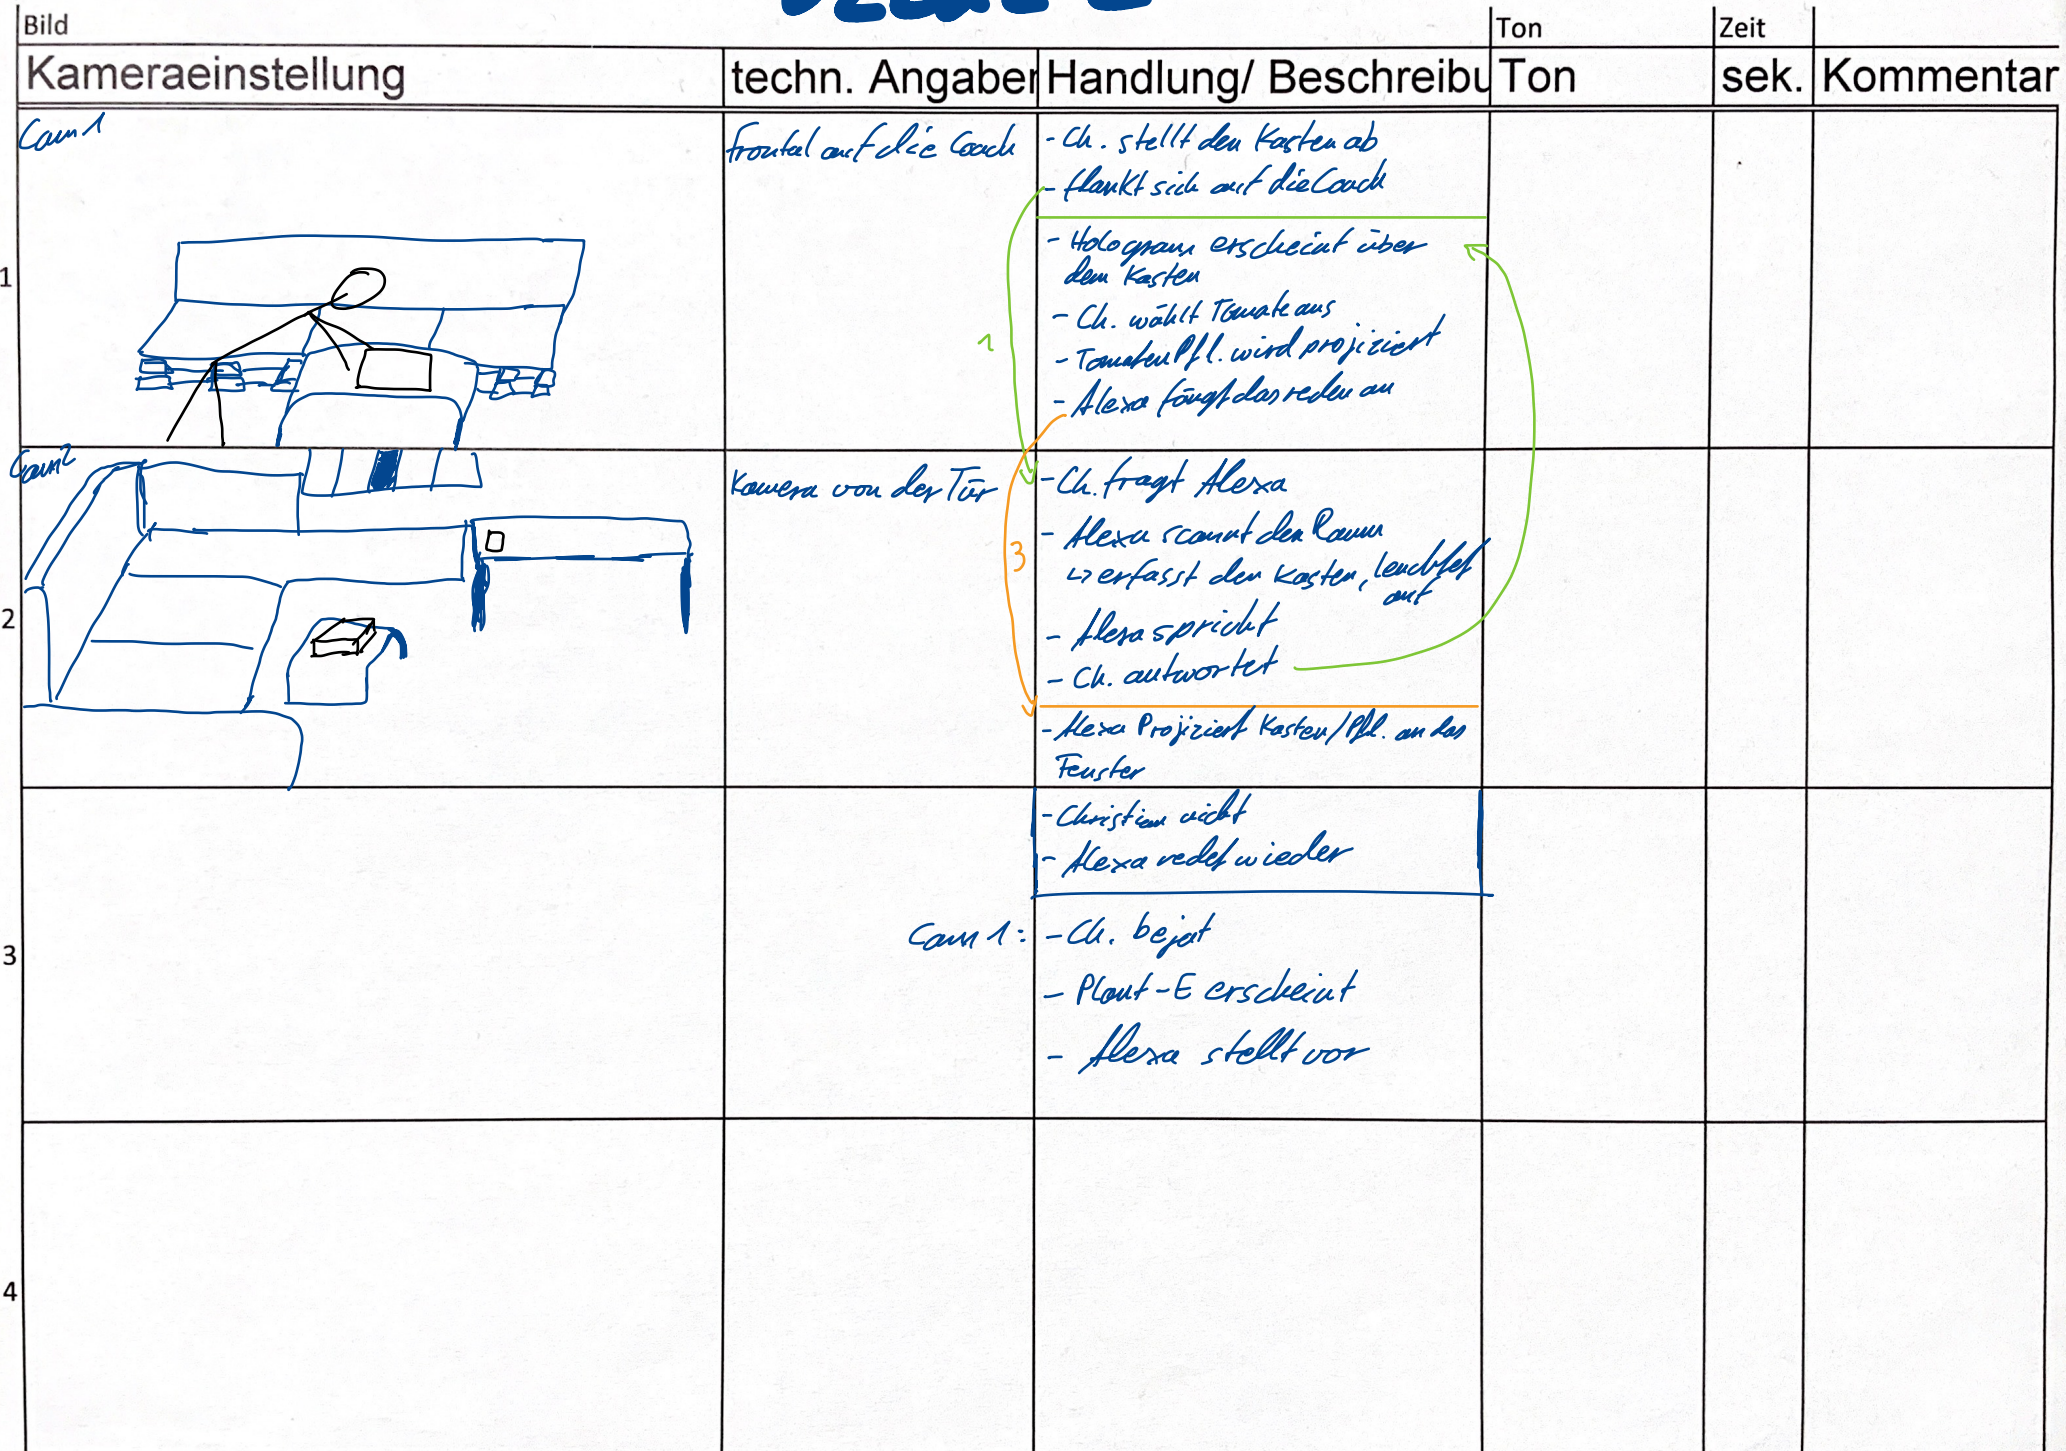 Bild
Ton
Zeit
Kameraeinstellung
techn. Angaben
Handlung/ Beschreibu
Ton
sek.
Kommentar
1
Cam 1
frontal auf die Coach
- Ch. stellt den Kasten ab
- flankt sich auf die Coach
- Hologramm erscheint über
dem Kasten
- Ch. wählt Tomate aus
- Tomaten Pfl. wird projiziert
- Alexa fängt das reden an
1
2
Cam 2
Kamera von der Tür
- Ch. fragt Alexa
- Alexa scannt den Raum
↳ erfasst den Kasten, leuchtet
auf
- Alexa spricht
- Ch. antwortet
3
- Alexa Projiziert Kasten/Pfl. an das
Fenster
3
- Christian nickt
- Alexa redet wieder
Cam 1:
- Ch. bejat
- Plant-E erscheint
- Alexa stellt vor
4